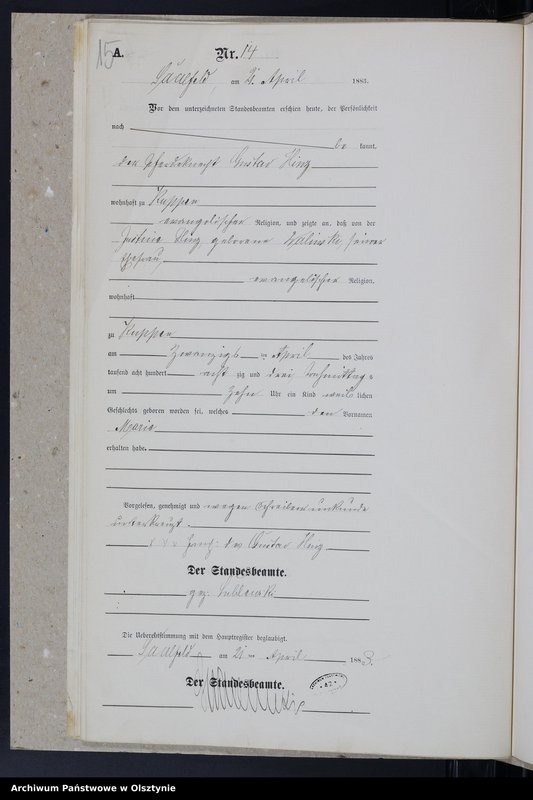 15
A.
Nr. 14
Saalfeld, am 21 April 1883.
Vor dem unterzeichneten Standesbeamten erschien heute, der Persönlichkeit
nach
be kannt,
der Pferdeknecht Gustav
wohnhaft zu Kuppen
evangelischer Religion, und zeigte an, daß von der
geborene seiner
Ehefrau,
evangelischer Religion,
wohnhaft
zu Kuppen
am Zwanzigs ten April des Jahres
tausend acht hundert acht zig und drei Nachmittags
um Zehn Uhr ein Kind weib lichen
Geschlechts geboren worden sei, welches den Vornamen
Marie
erhalten habe.
Vorgelesen, genehmigt und wegen Schreibensunkunde
unterkreuzt.
des Gustav
Der Standesbeamte.
gez.
Die Uebereinstimmung mit dem Hauptregister beglaubigt.
Saalfeld am 21 ten April 1883.
Der Standesbeamte.
Archiwum Państwowe w Olsztynie